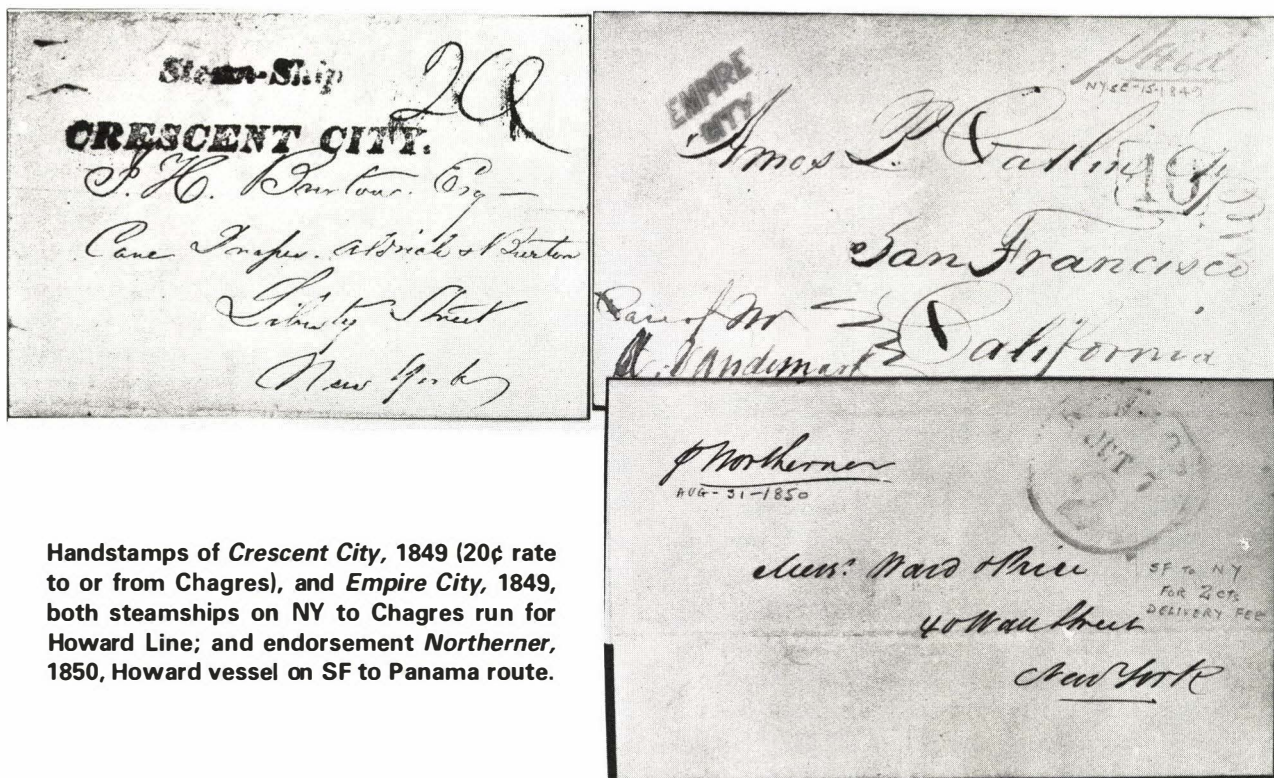 Steam-Ship
20
CRESCENT CITY.
J. H. Burtow. Esq
Care Draper. Aldrich & Burton
Liberty Street
New York
EMPIRE
CITY
paid
NY SE-15-1849
Amos P. Catlin Esq
10
San Francisco
Care of Mr
California
A. Vandemark
p Northerner
AUG-31-1850
OCT 7
Messrs. Ward & Price
SF TO NY
FOR 2 CTS
DELIVERY FEE
40 Wall Street
New York
Handstamps of Crescent City, 1849 (20¢ rate
to or from Chagres), and Empire City, 1849,
both steamships on NY to Chagres run for
Howard Line; and endorsement Northerner,
1850, Howard vessel on SF to Panama route.